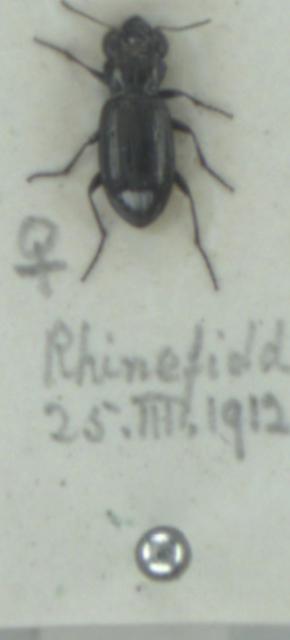 ♀
Rhinefield
25.III.1912